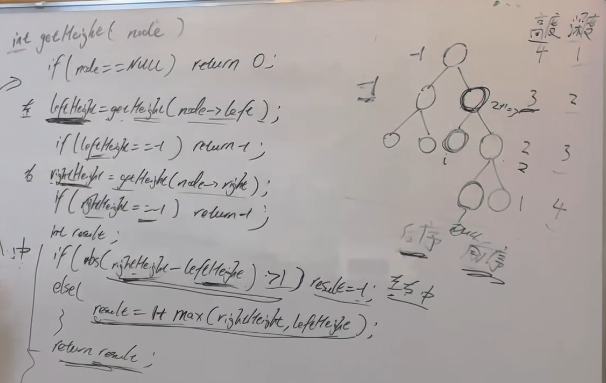 int getHeight( node)
if(node==NULL) return 0;
左 leftHeight=getHeight(node->left);
if(leftHeight==-1) return-1;
右 rightHeight=getHeight(node->right);
if(rightHeight==-1) return-1;
int result;
中 if(abs(rightHeight-leftHeight)>1) result=-1; 左右中
else{
result = 1+max(rightHeight,leftHeight);
}
return result;
高度 深度
4 1
-1
-1
3 2
1
2 3
2
1 4
NULL
后序 前序